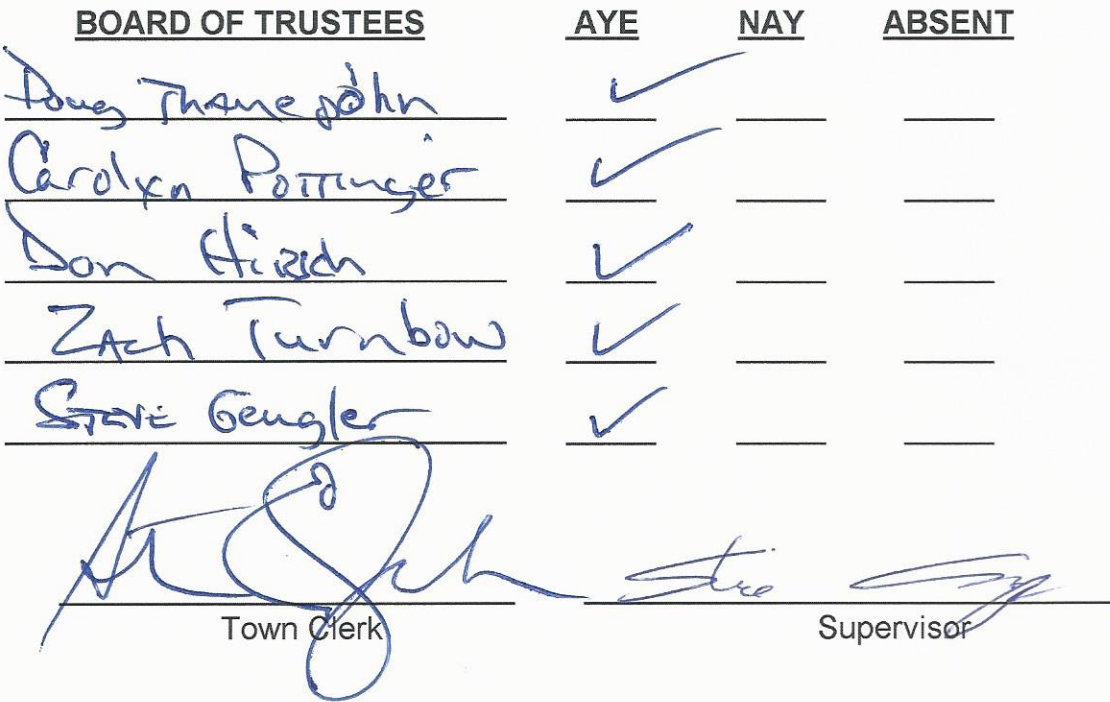 BOARD OF TRUSTEES AYE NAY ABSENT
Doug Thamejohn ✓
Carolyn Pottinger ✓
Don Hirsch ✓
Zach Turnbow ✓
Steve Gengler ✓
Town Clerk Supervisor